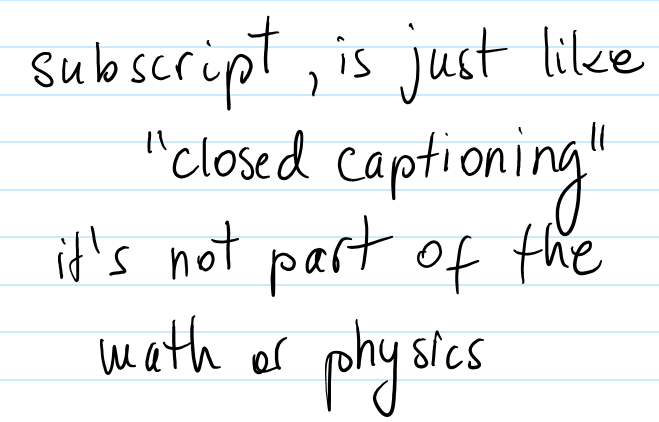 subscript, is just like
"closed captioning"
it's not part of the
math or physics